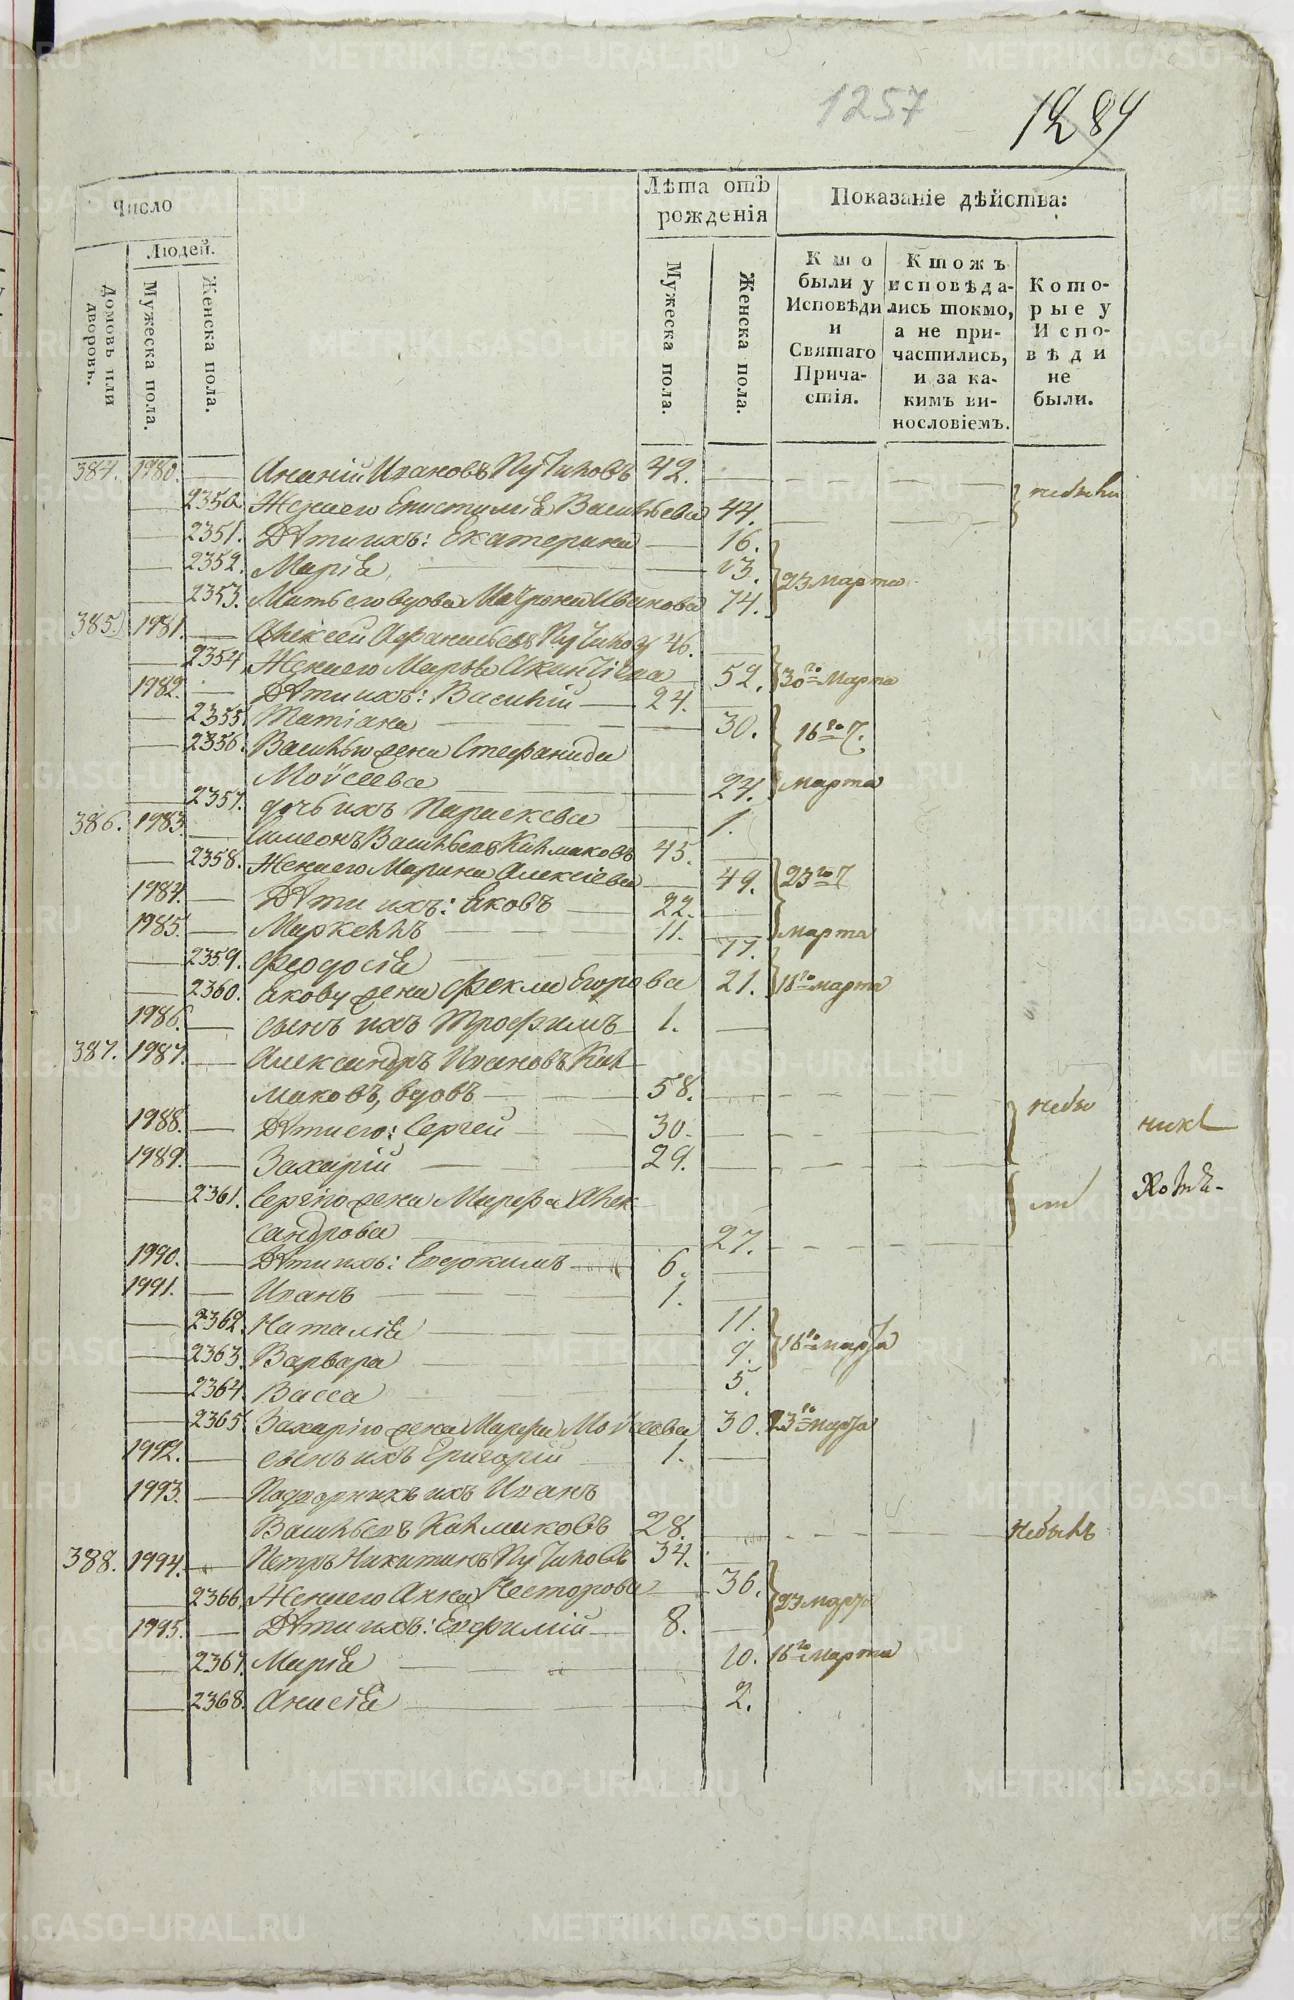 1257
1284
Число
Лѣта отъ рожденія
Показаніе дѣйства:
Людей.
Домовъ или дворовъ.
Мужеска пола.
Женска пола.
Мужеска пола.
Женска пола.
Кто были у Исповѣди и Святаго Прича-стія.
Ктожъ исповѣда-лись токмо, а не при-частились, и за ка-кимъ ви-нословіемъ.
Кото-рые у Испо-вѣди не были.
384. 1980. Ананій Ивановъ 42. небыли
2350 Жена его Епистимія Васильева 44.
2351. Дѣти ихъ: Екатерина 16.
2352. Марія 13. 23 Марта
2353. Мать его вдова Матрона Иванова 74.
385. 1981. Алексей Афанасьевъ 46.
2354. Жена его Марья 52. 30го Марта
1982. Дѣти ихъ: Василій 24.
2355. Татіана 30. 16го
2356. Василью жена Стефанида
Моѵсеева 24. Марта
2357. дочь ихъ Параскева 1.
386. 1983. Симеонъ Васильевъ Калмаковъ 45.
2358. Жена его Марина Алексіева 49. 23го
1984. Дѣти ихъ: Яковъ 22.
1985. Маркеллъ 11. марта
2359. Феодосія 17.
2360. Якову жена Фекла Егорова 21. 18го марта
1986. сынъ ихъ Трофимъ 1.
387. 1987. Александръ Ивановъ Кал
маковъ, вдовъ 58.
1988. Дѣти его: Сергей 30. небы
1989. Захарій 29.
2361. Сергію жена Марфа Алек
сандрова 27. ли
1990. Дѣти ихъ: Евдокимъ 6.
1991. Иванъ 1.
2362. Наталія 11.
2363. Варвара 9. 16го марта
2364. Васса 5.
2365. Захарію жена Марфа Моѵсеева 30. 23го марта
1992. сынъ ихъ Григорій 1.
1993. Подворникъ ихъ Иванъ
Васильевъ Калмаковъ 28. Небылъ
388. 1994. Петръ Никитинъ 34.
2366. Жена его Анна Несторова 36. 23 марта
1995. Дѣти ихъ: Евфимій 8.
2367. Марія 10. 16го марта
2368. Анисія 2.